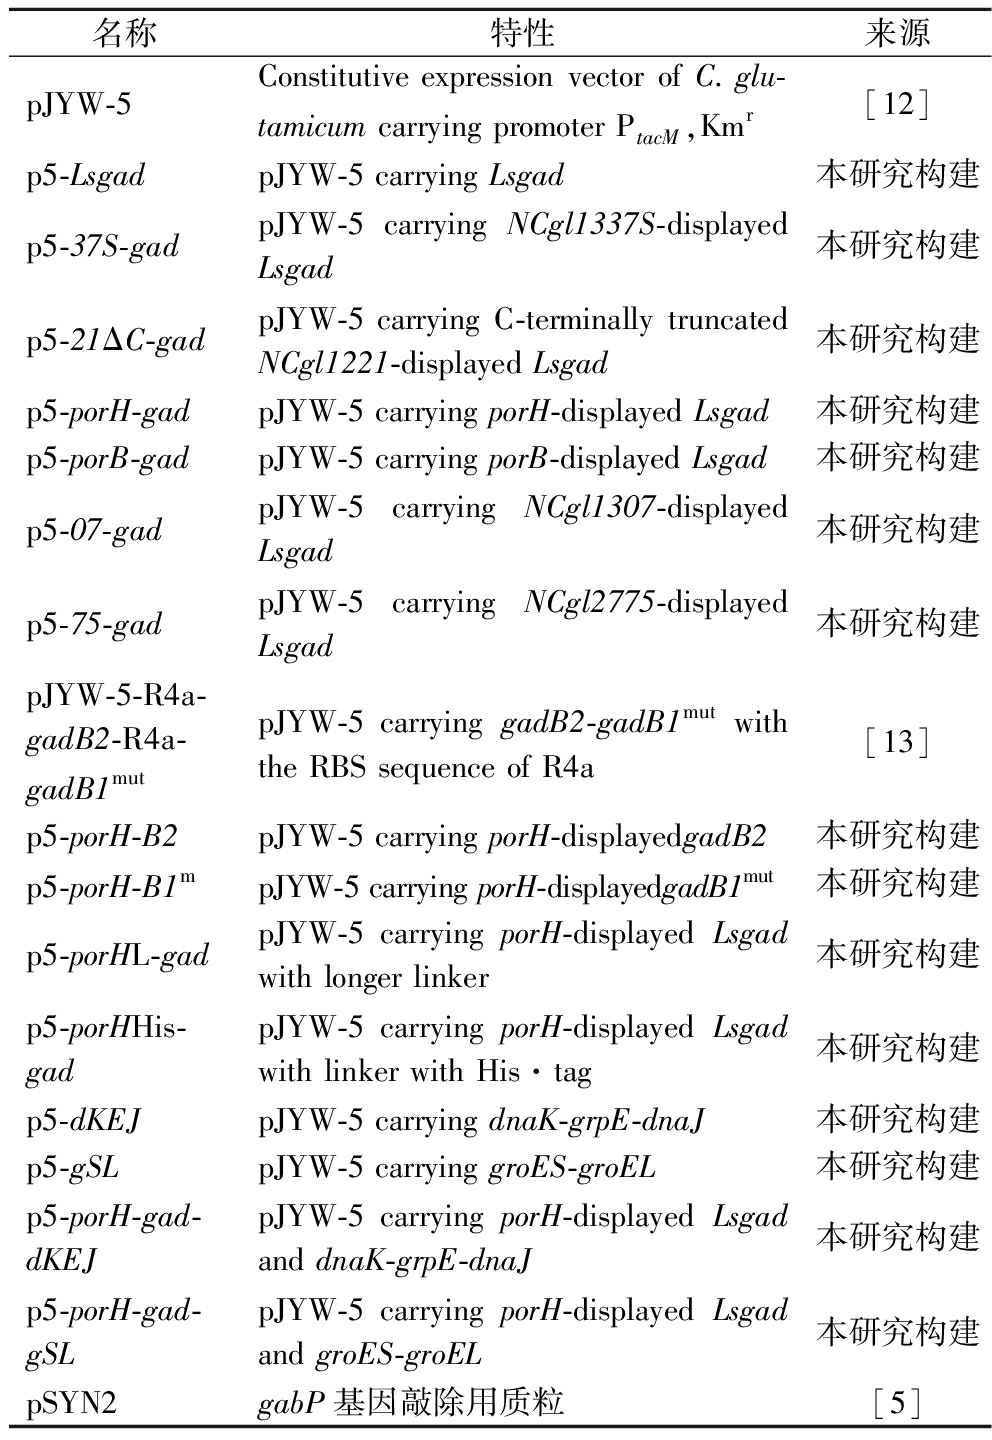 名称 特性 来源
pJYW-5 Constitutive expression vector of C. glu- [12]
tamicum carrying promoter PtacM,Kmr
p5-Lsgad pJYW-5 carrying Lsgad 本研究构建
p5-37S-gad pJYW-5 carrying NCgl1337S-displayed 本研究构建
Lsgad
p5-21ΔC-gad pJYW-5 carrying C-terminally truncated 本研究构建
NCgl1221-displayed Lsgad
p5-porH-gad pJYW-5 carrying porH-displayed Lsgad 本研究构建
p5-porB-gad pJYW-5 carrying porB-displayed Lsgad 本研究构建
p5-07-gad pJYW-5 carrying NCgl1307-displayed 本研究构建
Lsgad
p5-75-gad pJYW-5 carrying NCgl2775-displayed 本研究构建
Lsgad
pJYW-5-R4a-
gadB2-R4a- pJYW-5 carrying gadB2-gadB1mut with [13]
gadB1mut the RBS sequence of R4a
p5-porH-B2 pJYW-5 carrying porH-displayedgadB2 本研究构建
p5-porH-B1m pJYW-5 carrying porH-displayedgadB1mut 本研究构建
p5-porHL-gad pJYW-5 carrying porH-displayed Lsgad 本研究构建
with longer linker
p5-porHHis- pJYW-5 carrying porH-displayed Lsgad 本研究构建
gad with linker with His·tag
p5-dKEJ pJYW-5 carrying dnaK-grpE-dnaJ 本研究构建
p5-gSL pJYW-5 carrying groES-groEL 本研究构建
p5-porH-gad- pJYW-5 carrying porH-displayed Lsgad 本研究构建
dKEJ and dnaK-grpE-dnaJ
p5-porH-gad- pJYW-5 carrying porH-displayed Lsgad 本研究构建
gSL and groES-groEL
pSYN2 gabP基因敲除用质粒 [5]